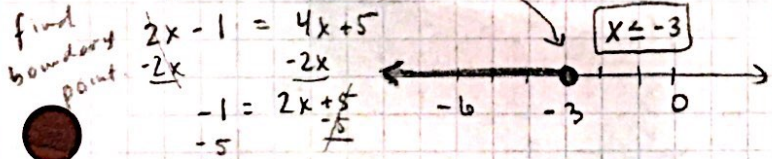 find boundary point
2x - 1 = 4x + 5
-2x -2x
-1 = 2x + 5
-5 -5
x ≤ -3
-6 -3 0